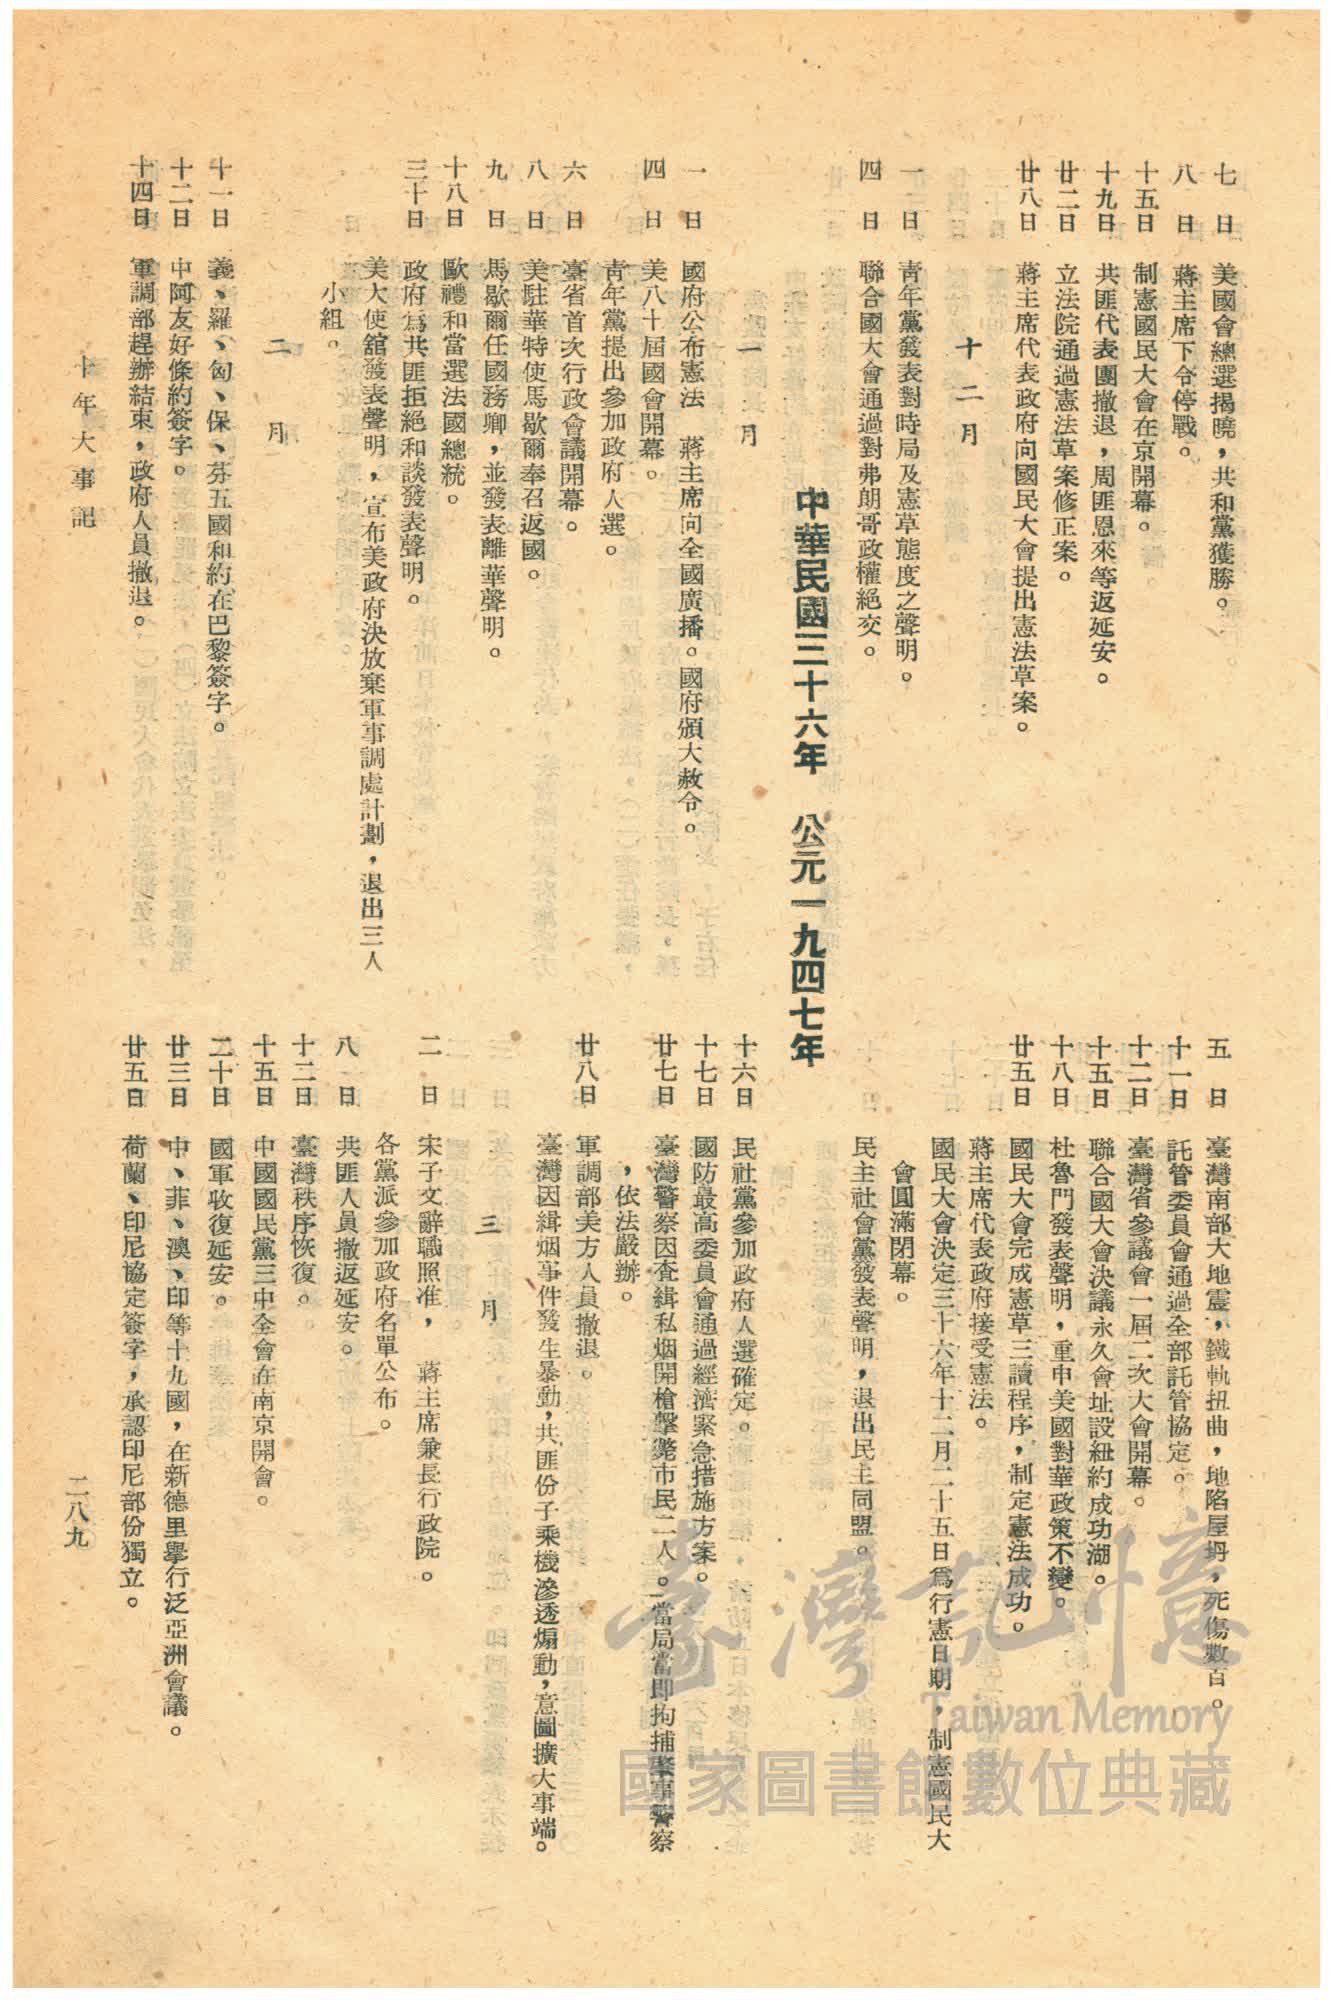 七　日　美國會總選揭曉，共和黨獲勝。
八　日　蔣主席下令停戰。
十五日　制憲國民大會在京開幕。
十九日　共匪代表團撤退，周匪恩來等返延安。
廿二日　立法院通過憲法草案修正案。
廿八日　蔣主席代表政府向國民大會提出憲法草案。
十二月
一　日　青年黨發表對時局及憲草態度之聲明。
四　日　聯合國大會通過對弗朗哥政權絕交。
五　日　臺灣南部大地震，鐵軌扭曲，地陷屋坍，死傷數百。
十一日　託管委員會通過全部託管協定。
十二日　臺灣省參議會一屆二次大會開幕。
十五日　聯合國大會決議永久會址設紐約成功湖。
十八日　杜魯門發表聲明，重申美國對華政策不變。
廿五日　國民大會完成憲草三讀程序，制定憲法成功。
蔣主席代表政府接受憲法。
國民大會決定三十六年十二月二十五日爲行憲日期，制憲國民大
會圓滿閉幕。
民主社會黨發表聲明，退出民主同盟。
中華民國三十六年　公元一九四七年
一月
一　日　國府公布憲法　蔣主席向全國廣播。國府頒大赦令。
四　日　美八十屆國會開幕。
青年黨提出參加政府人選。
六　日　臺省首次行政會議開幕。
八　日　美駐華特使馬歇爾奉召返國。
九　日　馬歇爾任國務卿，並發表離華聲明。
十八日　歐禮和當選法國總統。
三十日　政府爲共匪拒絕和談發表聲明。
美大使舘發表聲明，宣布美政府決放棄軍事調處計劃，退出三人
小組。
二月
十一日　義、羅、匈、保、芬五國和約在巴黎簽字。
十二日　中阿友好條約簽字。
十四日　軍調部趕辦結束，政府人員撤退。
十六日　民社黨參加政府人選確定。
十七日　國防最高委員會通過經濟緊急措施方案。
廿七日　臺灣警察因查緝私烟開槍擊斃市民二人。當局當即拘捕肇事警察
，依法嚴辦。
廿八日　軍調部美方人員撤退。
臺灣因緝烟事件發生暴動，共匪份子乘機滲透煽動，意圖擴大事端。
三月
二　日　宋子文辭職照准，　蔣主席兼長行政院。
各黨派參加政府名單公布。
八　日　共匪人員撤返延安。
十二日　臺灣秩序恢復。
十五日　中國國民黨三中全會在南京開會。
二十日　國軍收復延安。
廿三日　中、菲、澳、印等十九國，在新德里舉行泛亞洲會議。
廿五日　荷蘭、印尼協定簽字，承認印尼部份獨立。
十年大事記
二八九
臺灣記憶
Taiwan Memory
國家圖書館數位典藏